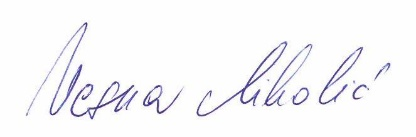 Vesna Nikolić